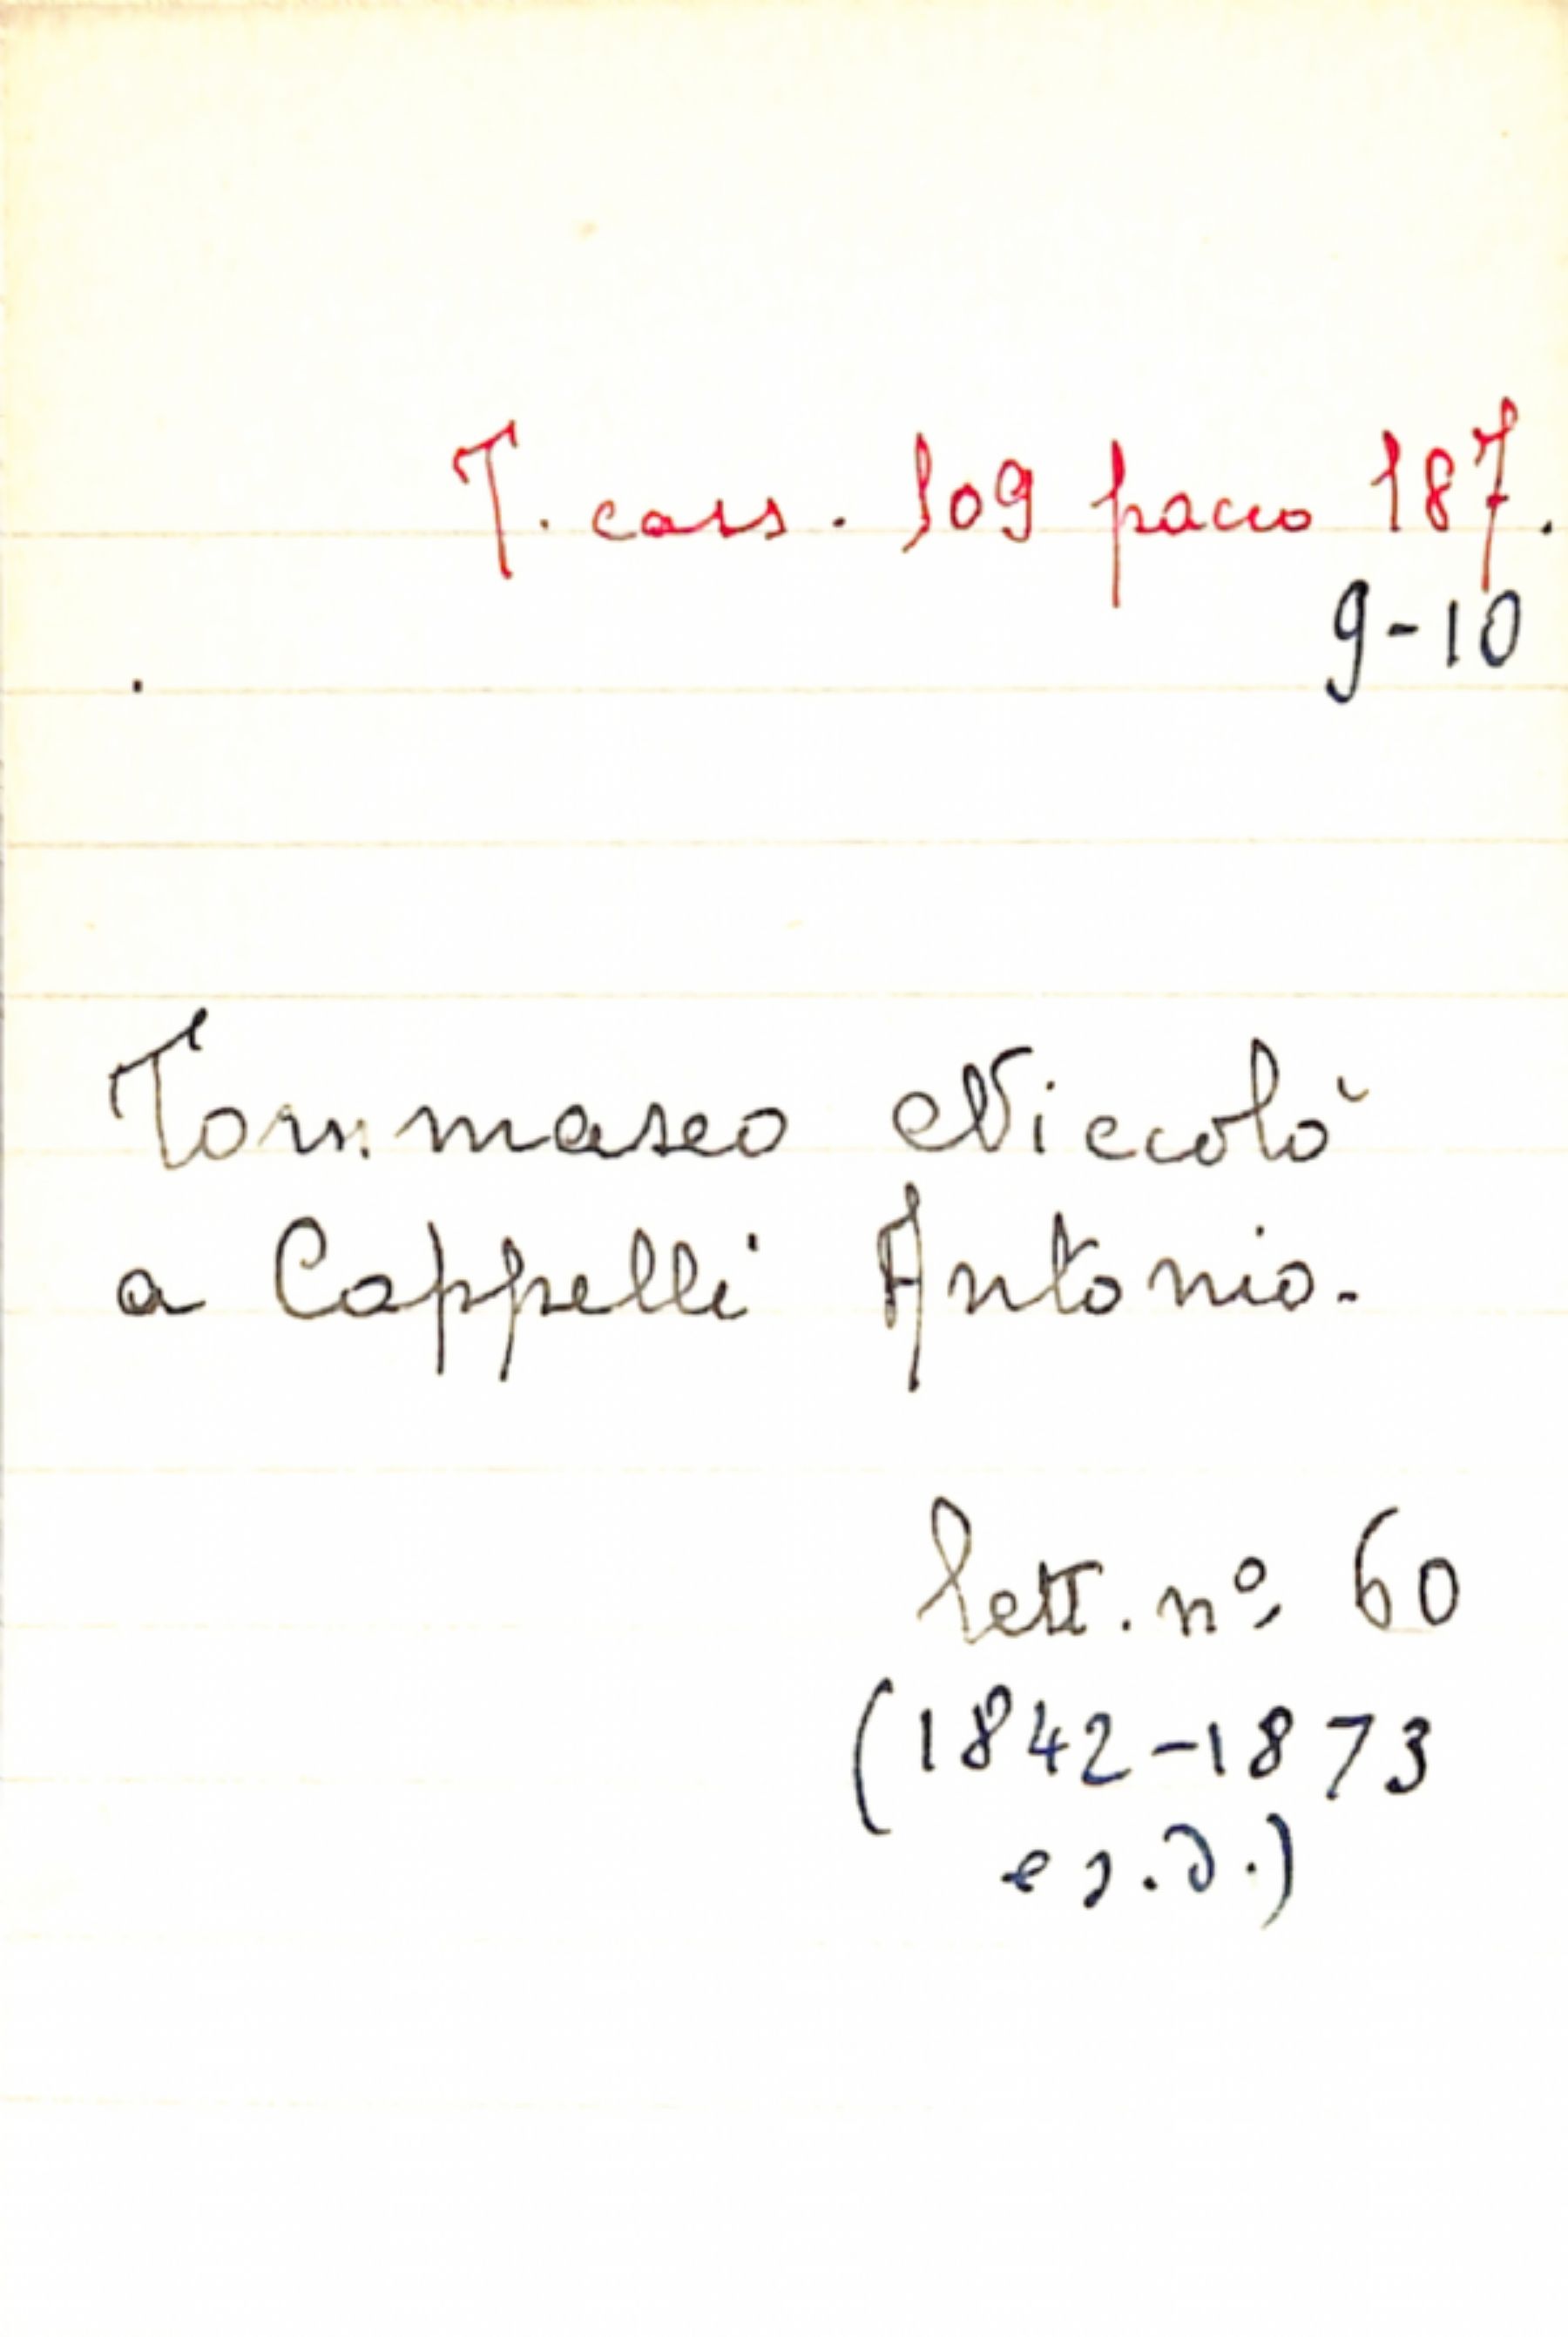 T. cass. 109 pacco 187.
9-10
Tommaseo Niccolò
a Cappelli Antonio.
lett. nº 60
(1842-1873
e s.d.)